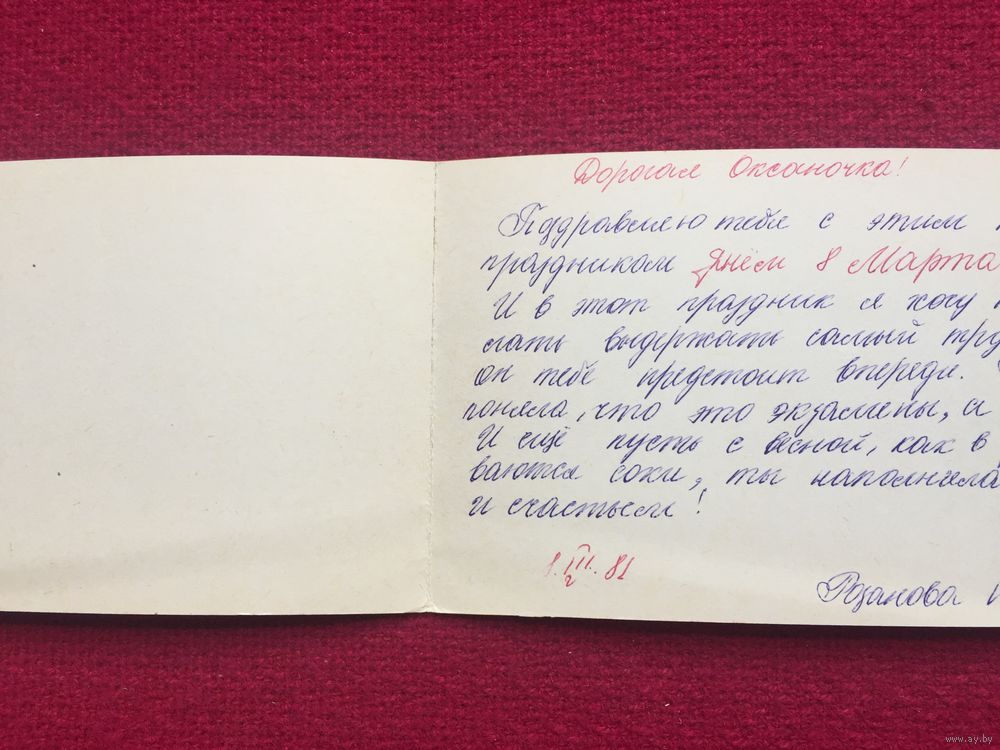 Дорогая Оксаночка!
Поздравляю тебя с этим
праздником Днём 8 Марта
И в этот праздник я хочу
лать выдержать самый тру
он тебе предстоит впереди.
поняла, что это экзамены, а
И ещё пусть с весной, как в
ваются соки, ты наполнила
и счастьем!
8.III.81
Розанова И
www.ay.by